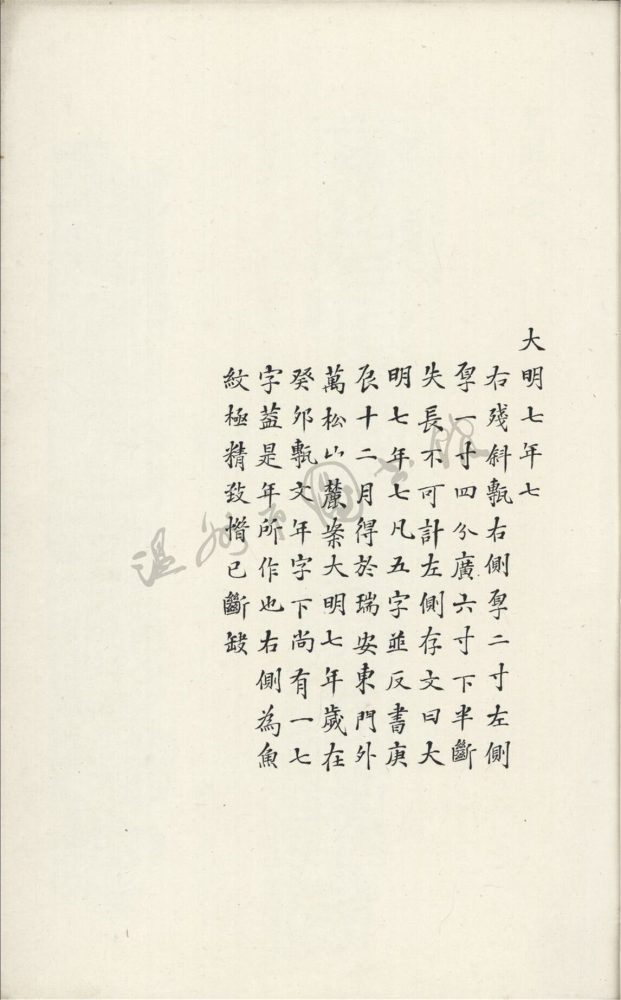 大明七年七
右殘斜甎右側厚二寸左側
厚一寸四分廣六寸下半斷
失長不可計左側存文曰大
明七年七凡五字並反書庚
辰十二月得於瑞安東門外
萬松山麓案大明七年歲在
癸卯甎文年字下尚有一七
字葢是年所作也右側為魚
紋極精致惜已斷缺
温州市圖書館